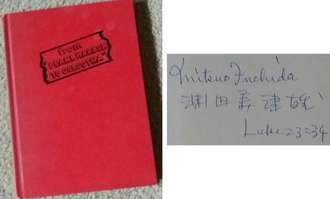 from
"PEARL HARBOR
TO GOLGOTHA"
Mitsuo Fuchida
淵田美津雄
Luke 23:34